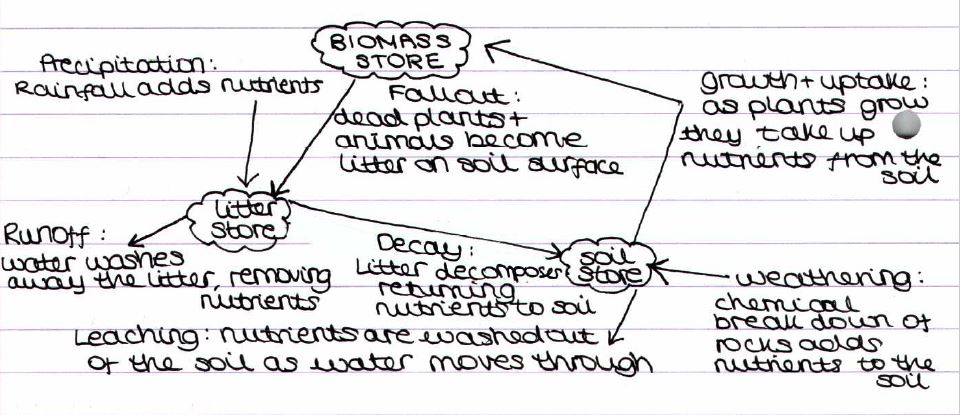 BIOMASS
STORE
Precipitation:
Rainfall adds nutrients
Fallout:
dead plants +
animals become
litter on soil surface
Growth + uptake:
as plants grow
they take up
nutrients from the
soil
litter
store
Runoff:
water washes
away the litter, removing
nutrients
Decay:
Litter decomposes
returning
nutrients to soil
soil
store
weathering:
chemical
break down of
rocks adds
nutrients to the
soil
Leaching: nutrients are washed out
of the soil as water moves through